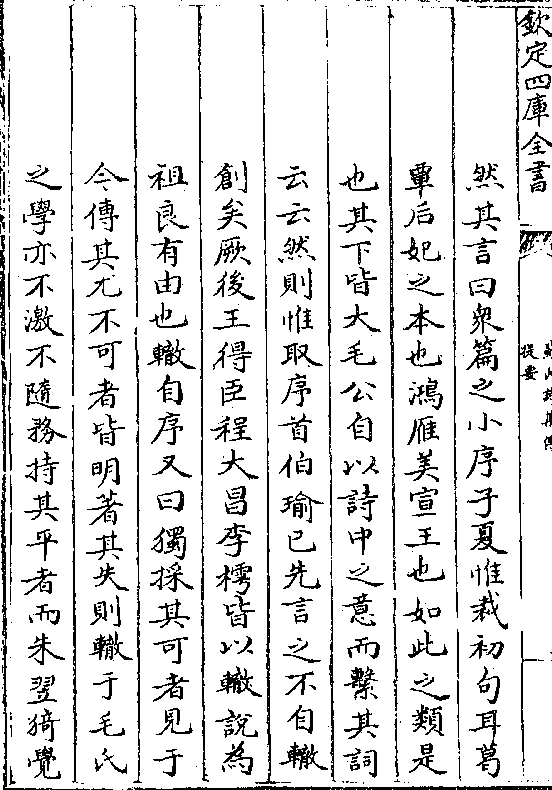 欽定四庫全書
提要
然其言曰衆篇之小序子夏惟裁初句耳葛
覃后妃之本也鴻雁美宣王也如此之類是
也其下皆大毛公自以詩中之意而繫其詞
云云然則惟取序首伯瑜已先言之不自轍
創矣厥後王得臣程大昌李樗皆以轍說為
祖良有由也轍自序又曰獨採其可者見于
今傳其尤不可者皆明著其失則轍于毛氏
之學亦不激不隨務持其平者而朱翌猗覺